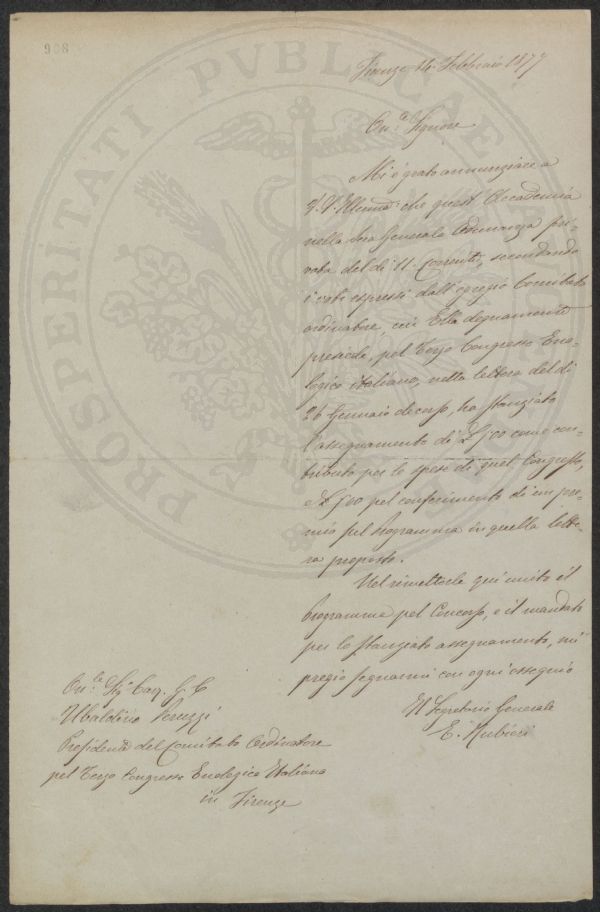 908
PROSPERITATI PVBLICAE
Firenze 14 Febbraio 1877
On.le Signore
Mi è grato annunziare a
V. S. Illuma che quest'Accademia
nella sua Generale Adunanza pri-
vata del dì 11. Corrente, secondando
i voti espressi dall'egregio Comitato
ordinatore, cui Ella degnamente
presiede, pel Terzo Congresso Eno-
logico italiano, nella lettera del dì
26 Gennaio decorso, ha stanziato
l'assegnamento di £ 500 come con-
tributo per le spese di quel Congresso,
e £ 500 pel conferimento di un pre-
mio pel Programma in quella lette-
ra proposto.
Nel rimetterle qui unito il
Programma pel Concorso, e il mandato
per lo stanziato assegnamento, mi
pregio segnarmi con ogni ossequio
Il Segretario Generale
E. Rubieri
On.le Sig.r Cav. G. C.
Ubaldino Peruzzi
Presidente del Comitato Ordinatore
pel Terzo Congresso Enologico Italiano
in Firenze